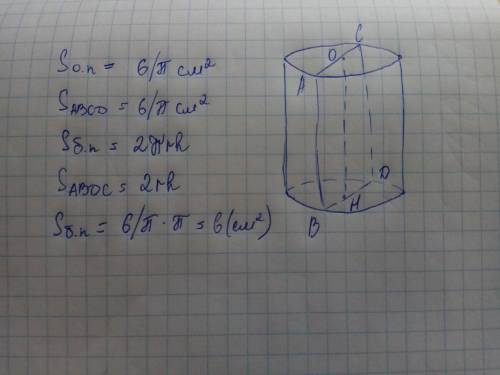 Sо.п = 6/π см²
SABCD = 6/π см²
Sб.п = 2πrh
SABDC = 2rh
Sб.п = 6/π · π = 6 (см²)
C
O
A
D
H
B